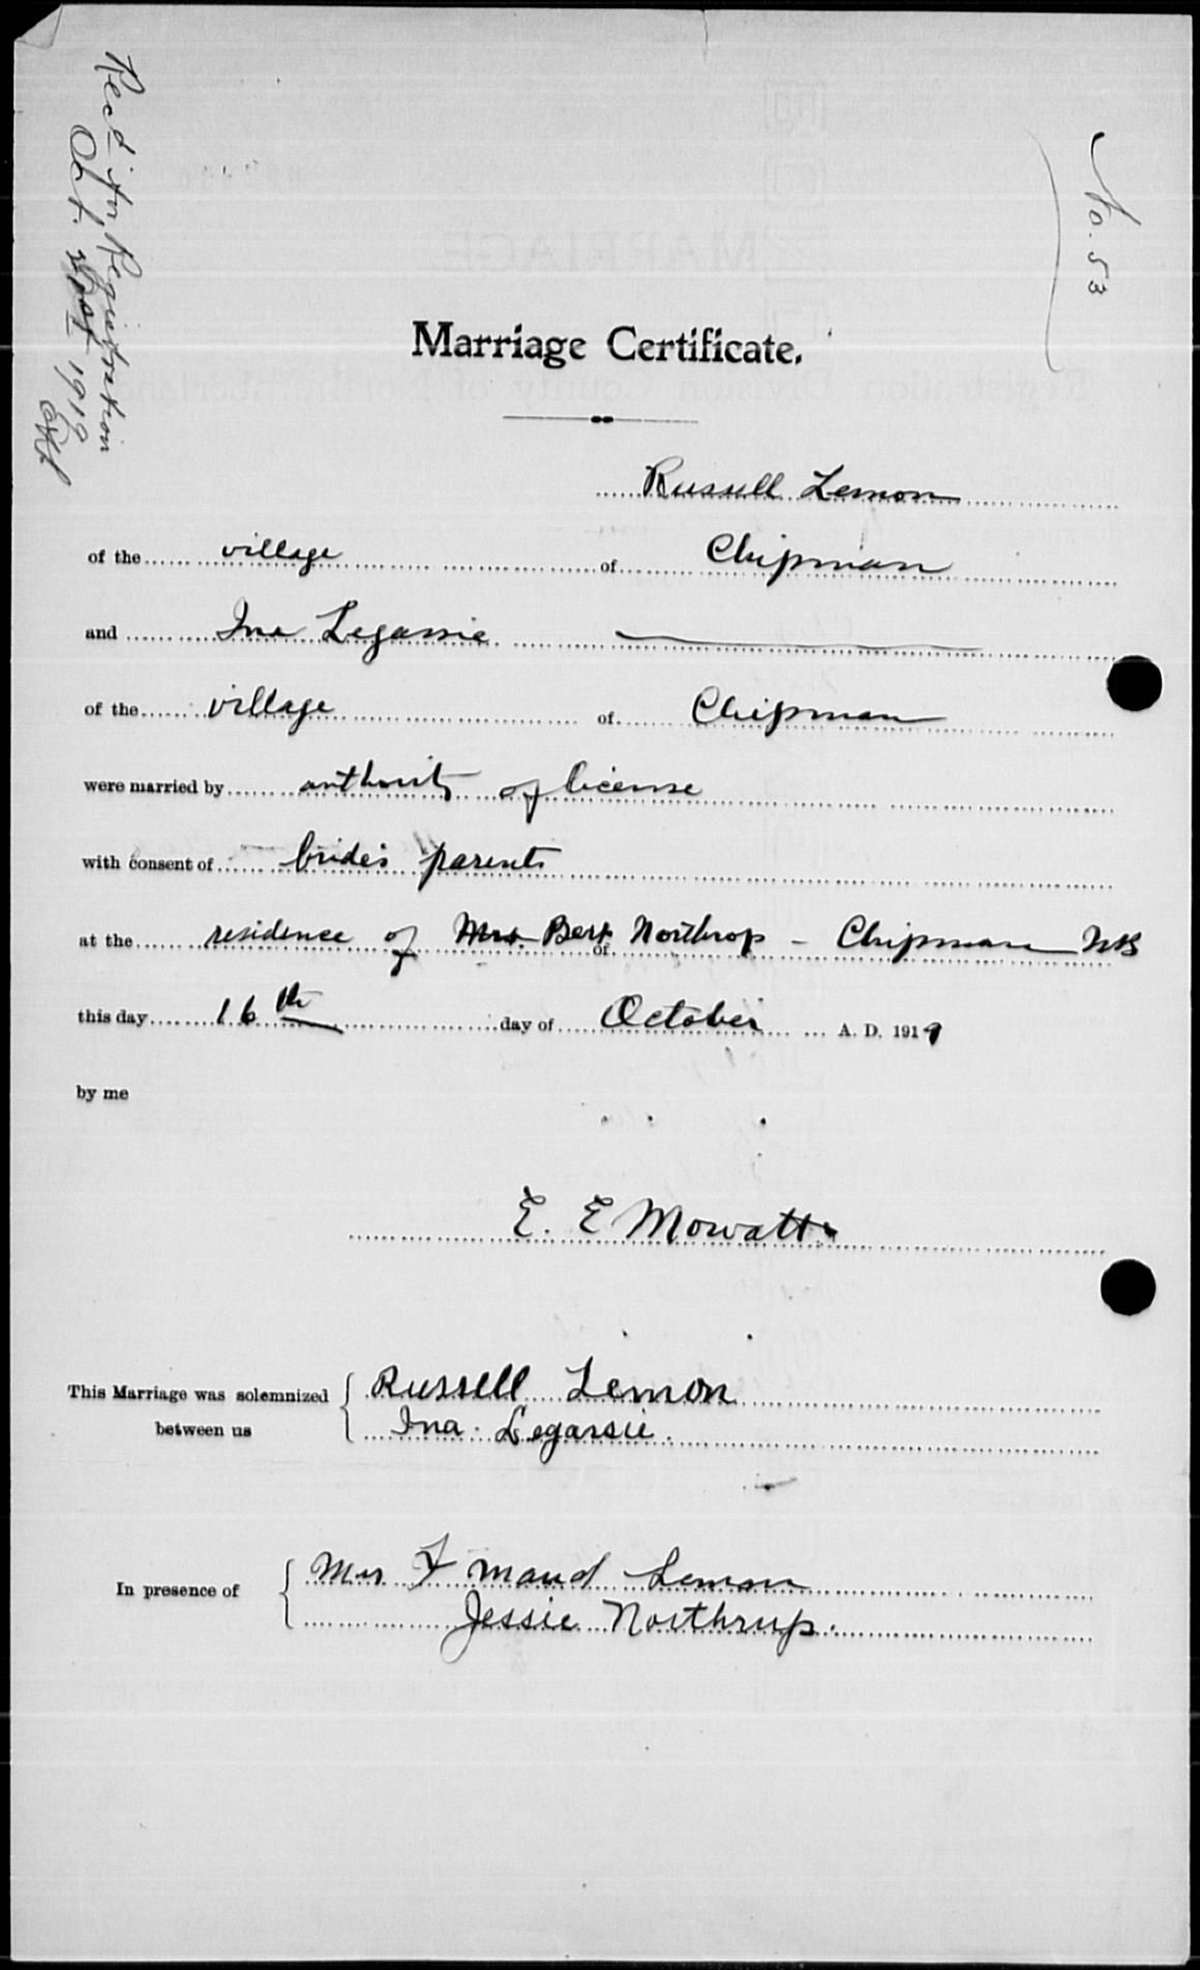 Rec'd for Registration
Oct. 1919
No. 53
Marriage Certificate.
Russell Lemon
of the village of Chipman
and Ina Legassie
of the village of Chipman
were married by authority of license
with consent of bride's parents
at the residence of Mrs. Bert Northrop - Chipman NB
this day 16th day of October A. D. 1919
by me
E. E Mowatt
This Marriage was solemnized between us
Russell Lemon
Ina Legassie.
In presence of
Mrs F Maud Lemon
Jessie Northrup.